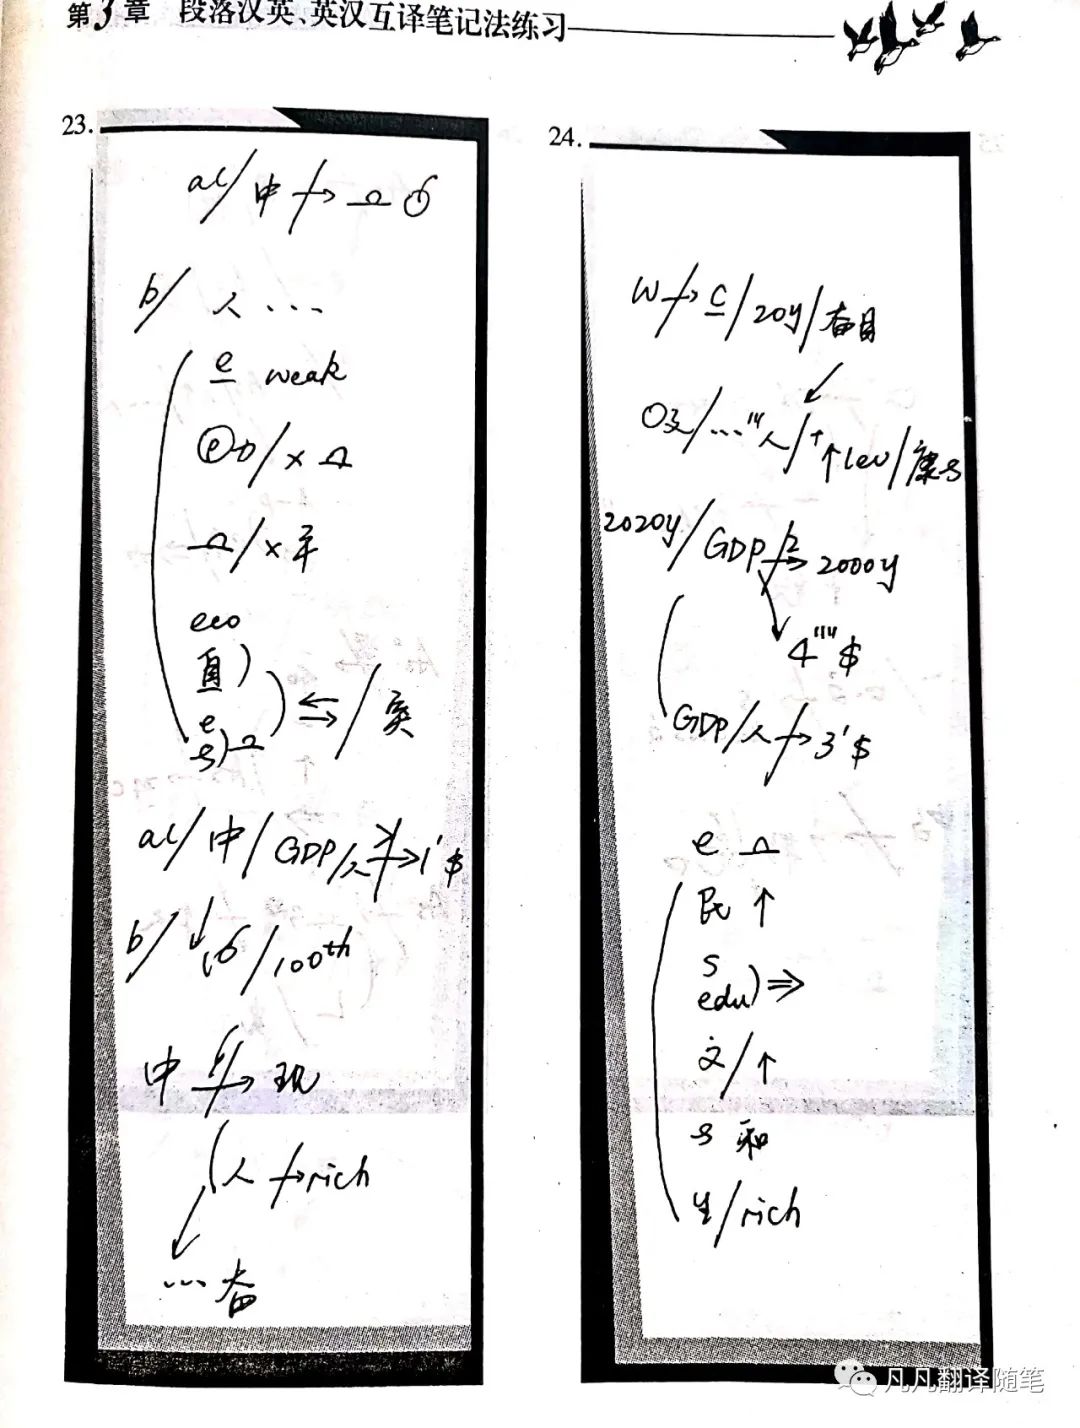 第3章 段落汉英、英汉互译笔记法练习
23.
al/中
b/人…
e weak
/×
/×平
eco
直)
e
al/中/GDP/人→1'$
b/ ↓ /100th
中→现
(人→rich
…奋
24.
W→c/20y/奋目
/…'''人/+↑lev/康
2020y/GDP 2→2000y
4''''$
GDP/人→3'$
e
民↑
s
edu)⇒
文/↑
和
生/rich
凡凡翻译随笔